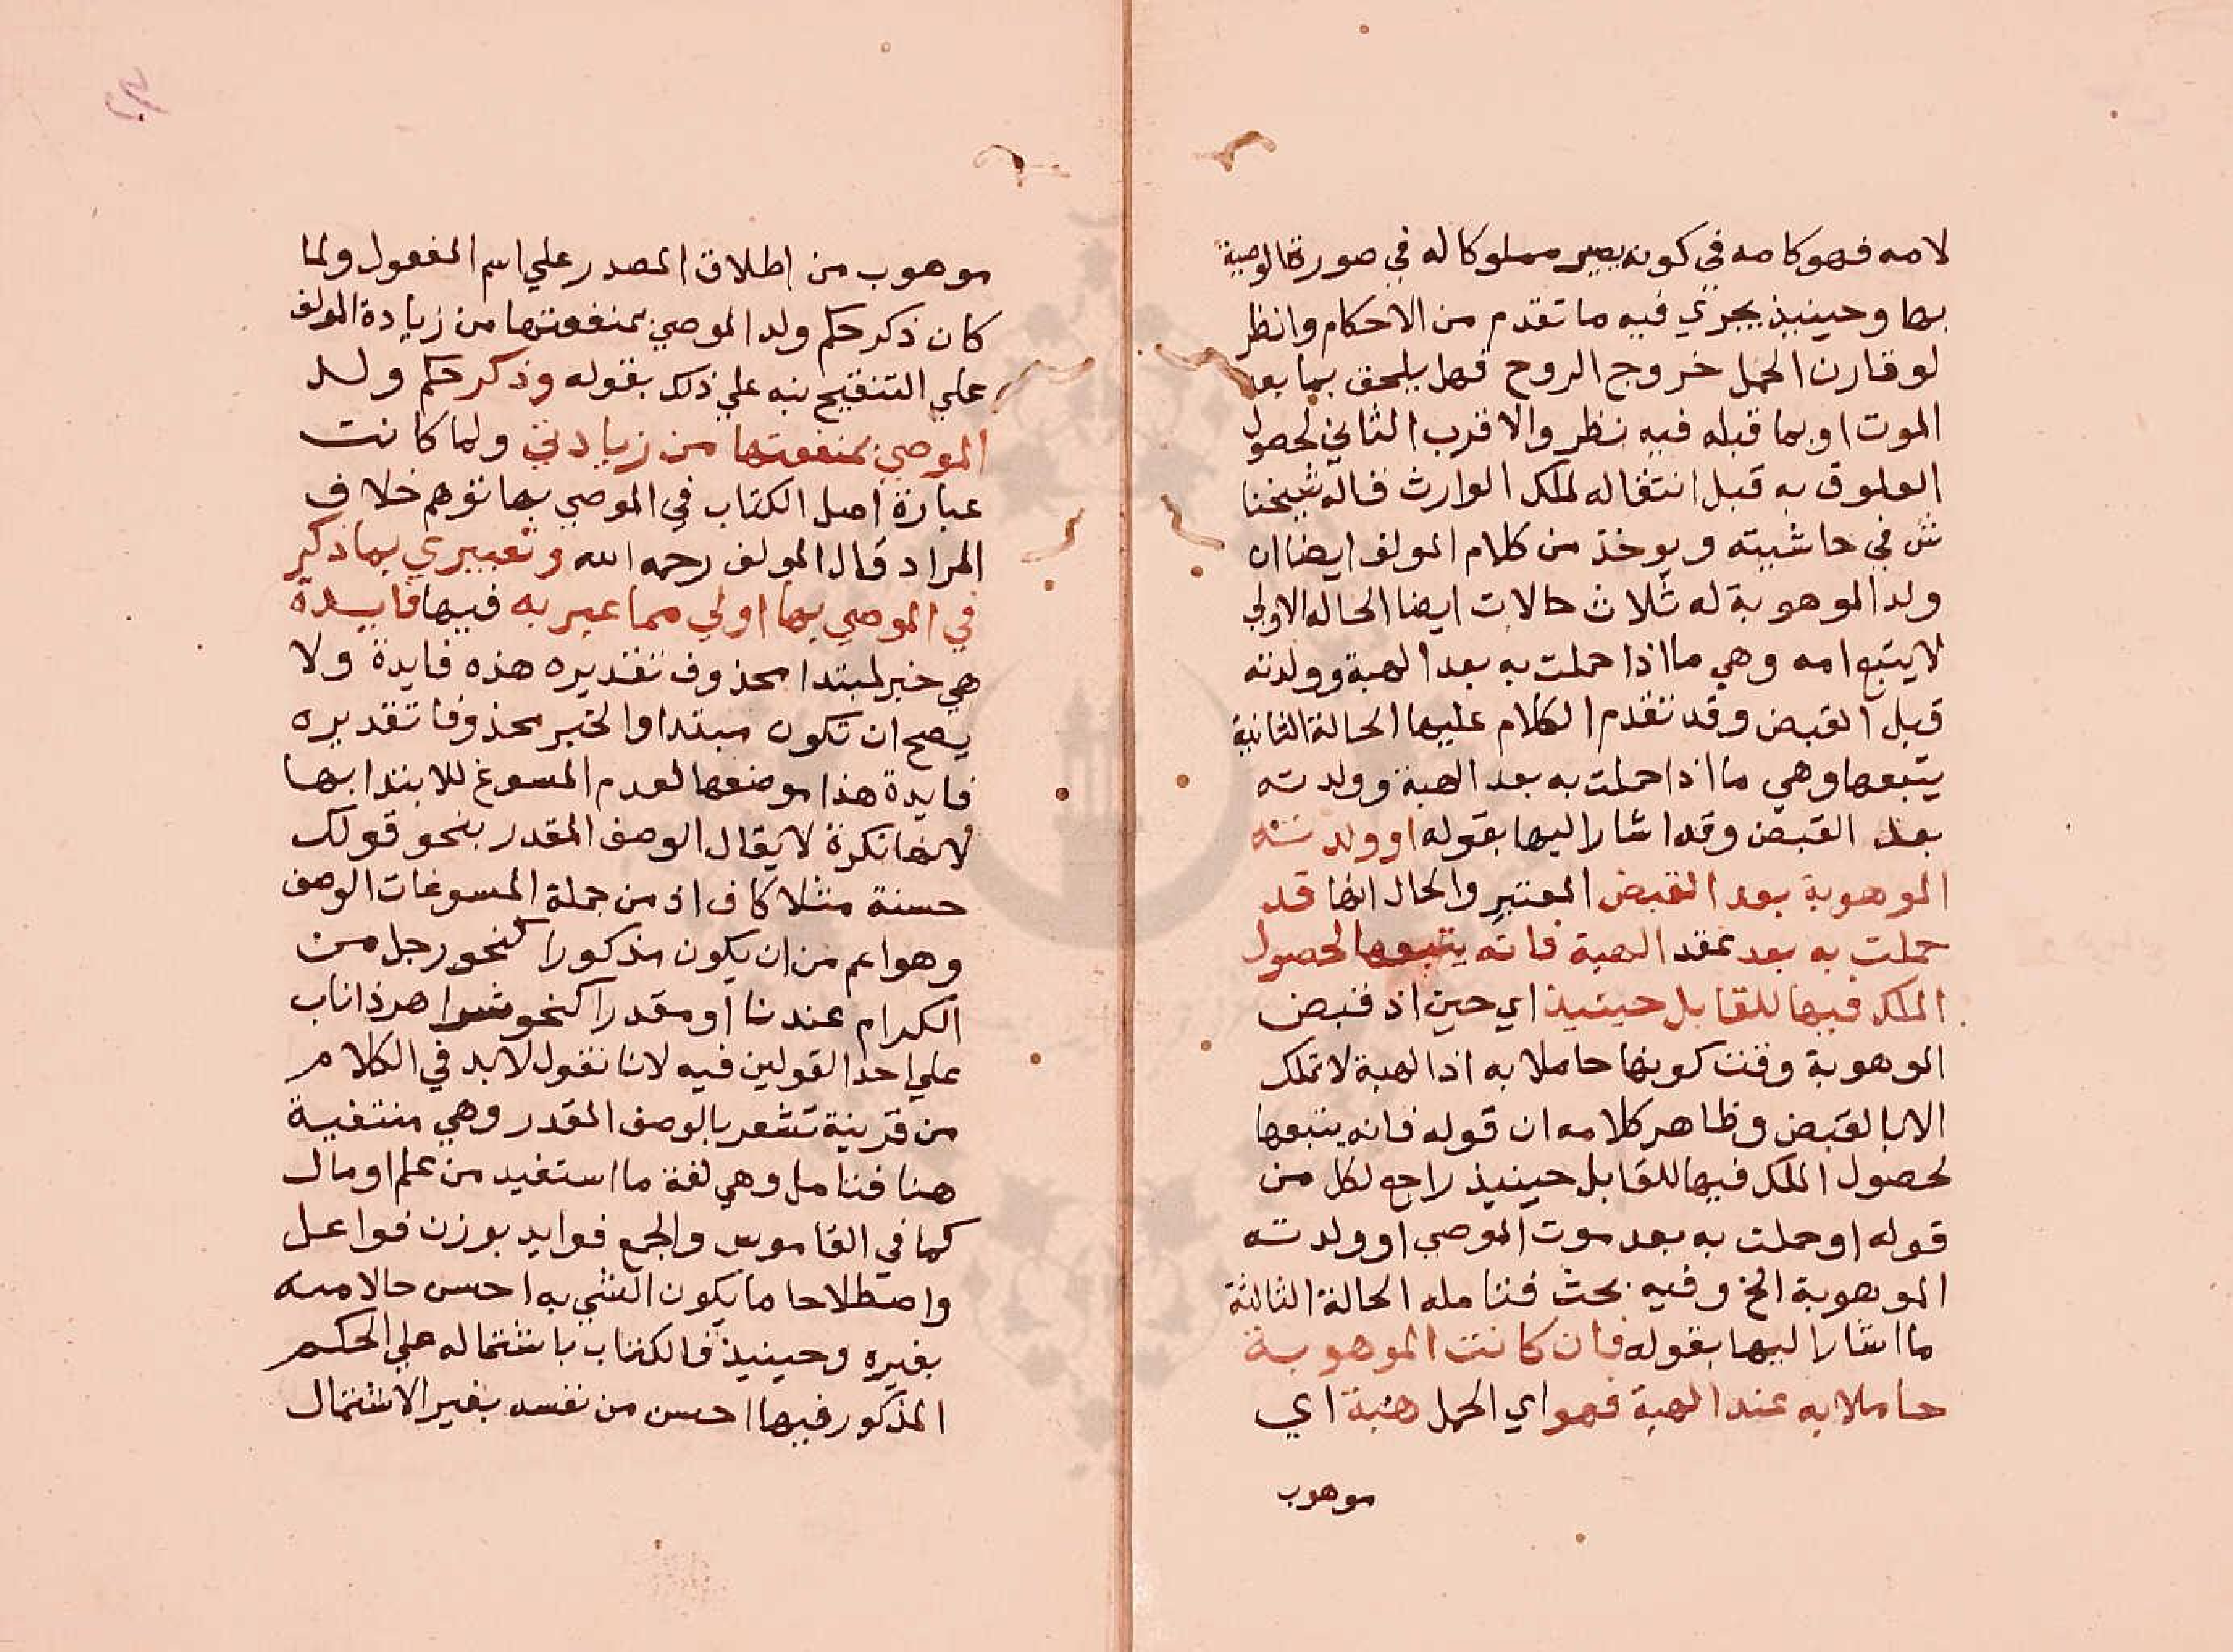 لامه فهو كامه في كونه يصير مملوكا له في صورة الوصية
بها وحينيذ يجري فيه ما تقدم من الاحكام وانظر
لو قارن الحمل خروج الروح فهل يلحق بما بعد
الموت او بما قبله فيه نظر والاقرب الثاني لحصول
العلوق به قبل انتقاله لملك الوارث قاله شيخنا
ش في حاشيته ويوخذ من كلام المولف ايضا ان
ولد الموهوبة له ثلاث حالات ايضا الحاله الاولي
لا يتبع امه وهي ما اذا حملت به بعد الهبة وولدته
قبل القبض وقد تقدم الكلام عليها الحالة الثانية
يتبعها وهي ما اذا حملت به بعد الهبة وولدته
بعد القبض وقد اشار اليها بقوله او ولدته
الموهوبة بعد القبض المعتبر والحال انها قد
حملت به بعد عقد الهبة فانه يتبعها لحصول
الملك فيها للقابل حينيذ اي حين اذ قبض
الموهوبة وقت كونها حاملا به اذ الهبة لا تملك
الا بالقبض وظاهر كلامه ان قوله فانه يتبعها
لحصول الملك فيها للقابل حينيذ راجع لكل من
قوله او حملت به بعد موت الموصي او ولدته
الموهوبة الخ وفيه بحث فتامله الحالة الثالثة
ما اشار اليها بقوله فان كانت الموهوبة
حاملا به عند الهبة فهو اي الحمل هبة اي
موهوب
موهوب من اطلاق المصدر علي اسم المفعول ولما
كان ذكر حكم ولد الموصي بمنفعتها من زيادة المولف
علي التنقيح نبه علي ذلك بقوله وذكر حكم ولد
الموصي بمنفعتها من زيادتي ولما كانت
عبارة اصل الكتاب في الموصي بها توهم خلاف
المراد قال المولف رحمه الله وتعبيري بما ذكر
في الموصي بها اولي مما عبر به فيها فايدة
هي خبر لمبتدا محذوف تقديره هذه فايدة ولا
يصح ان تكون مبتدا والخبر محذوفا تقديره
فايدة هذا موضعها لعدم المسوغ للابتدا بها
لانها نكرة لا يقال الوصف المقدر بنحو قولك
حسنة مثلا كاف اذ من جملة المسوغات الوصف
وهو اعم من ان يكون مذكورا كنحو رجل من
الكرام عندنا او مقدرا كنحو شر اهر ذا ناب
علي احد القولين فيه لانا نقول لا بد في الكلام
من قرينة تشعر بالوصف المقدر وهي منتفية
هنا فتامل وهي لغة ما استفيد من علم او مال
كما في القاموس والجمع فوايد بوزن فواعل
واصطلاحا ما يكون الشي به احسن حالا منه
بغيره وحينيذ فالكتاب باشتماله علي الحكم
المذكور فيها احسن من نفسه بغير الاشتمال